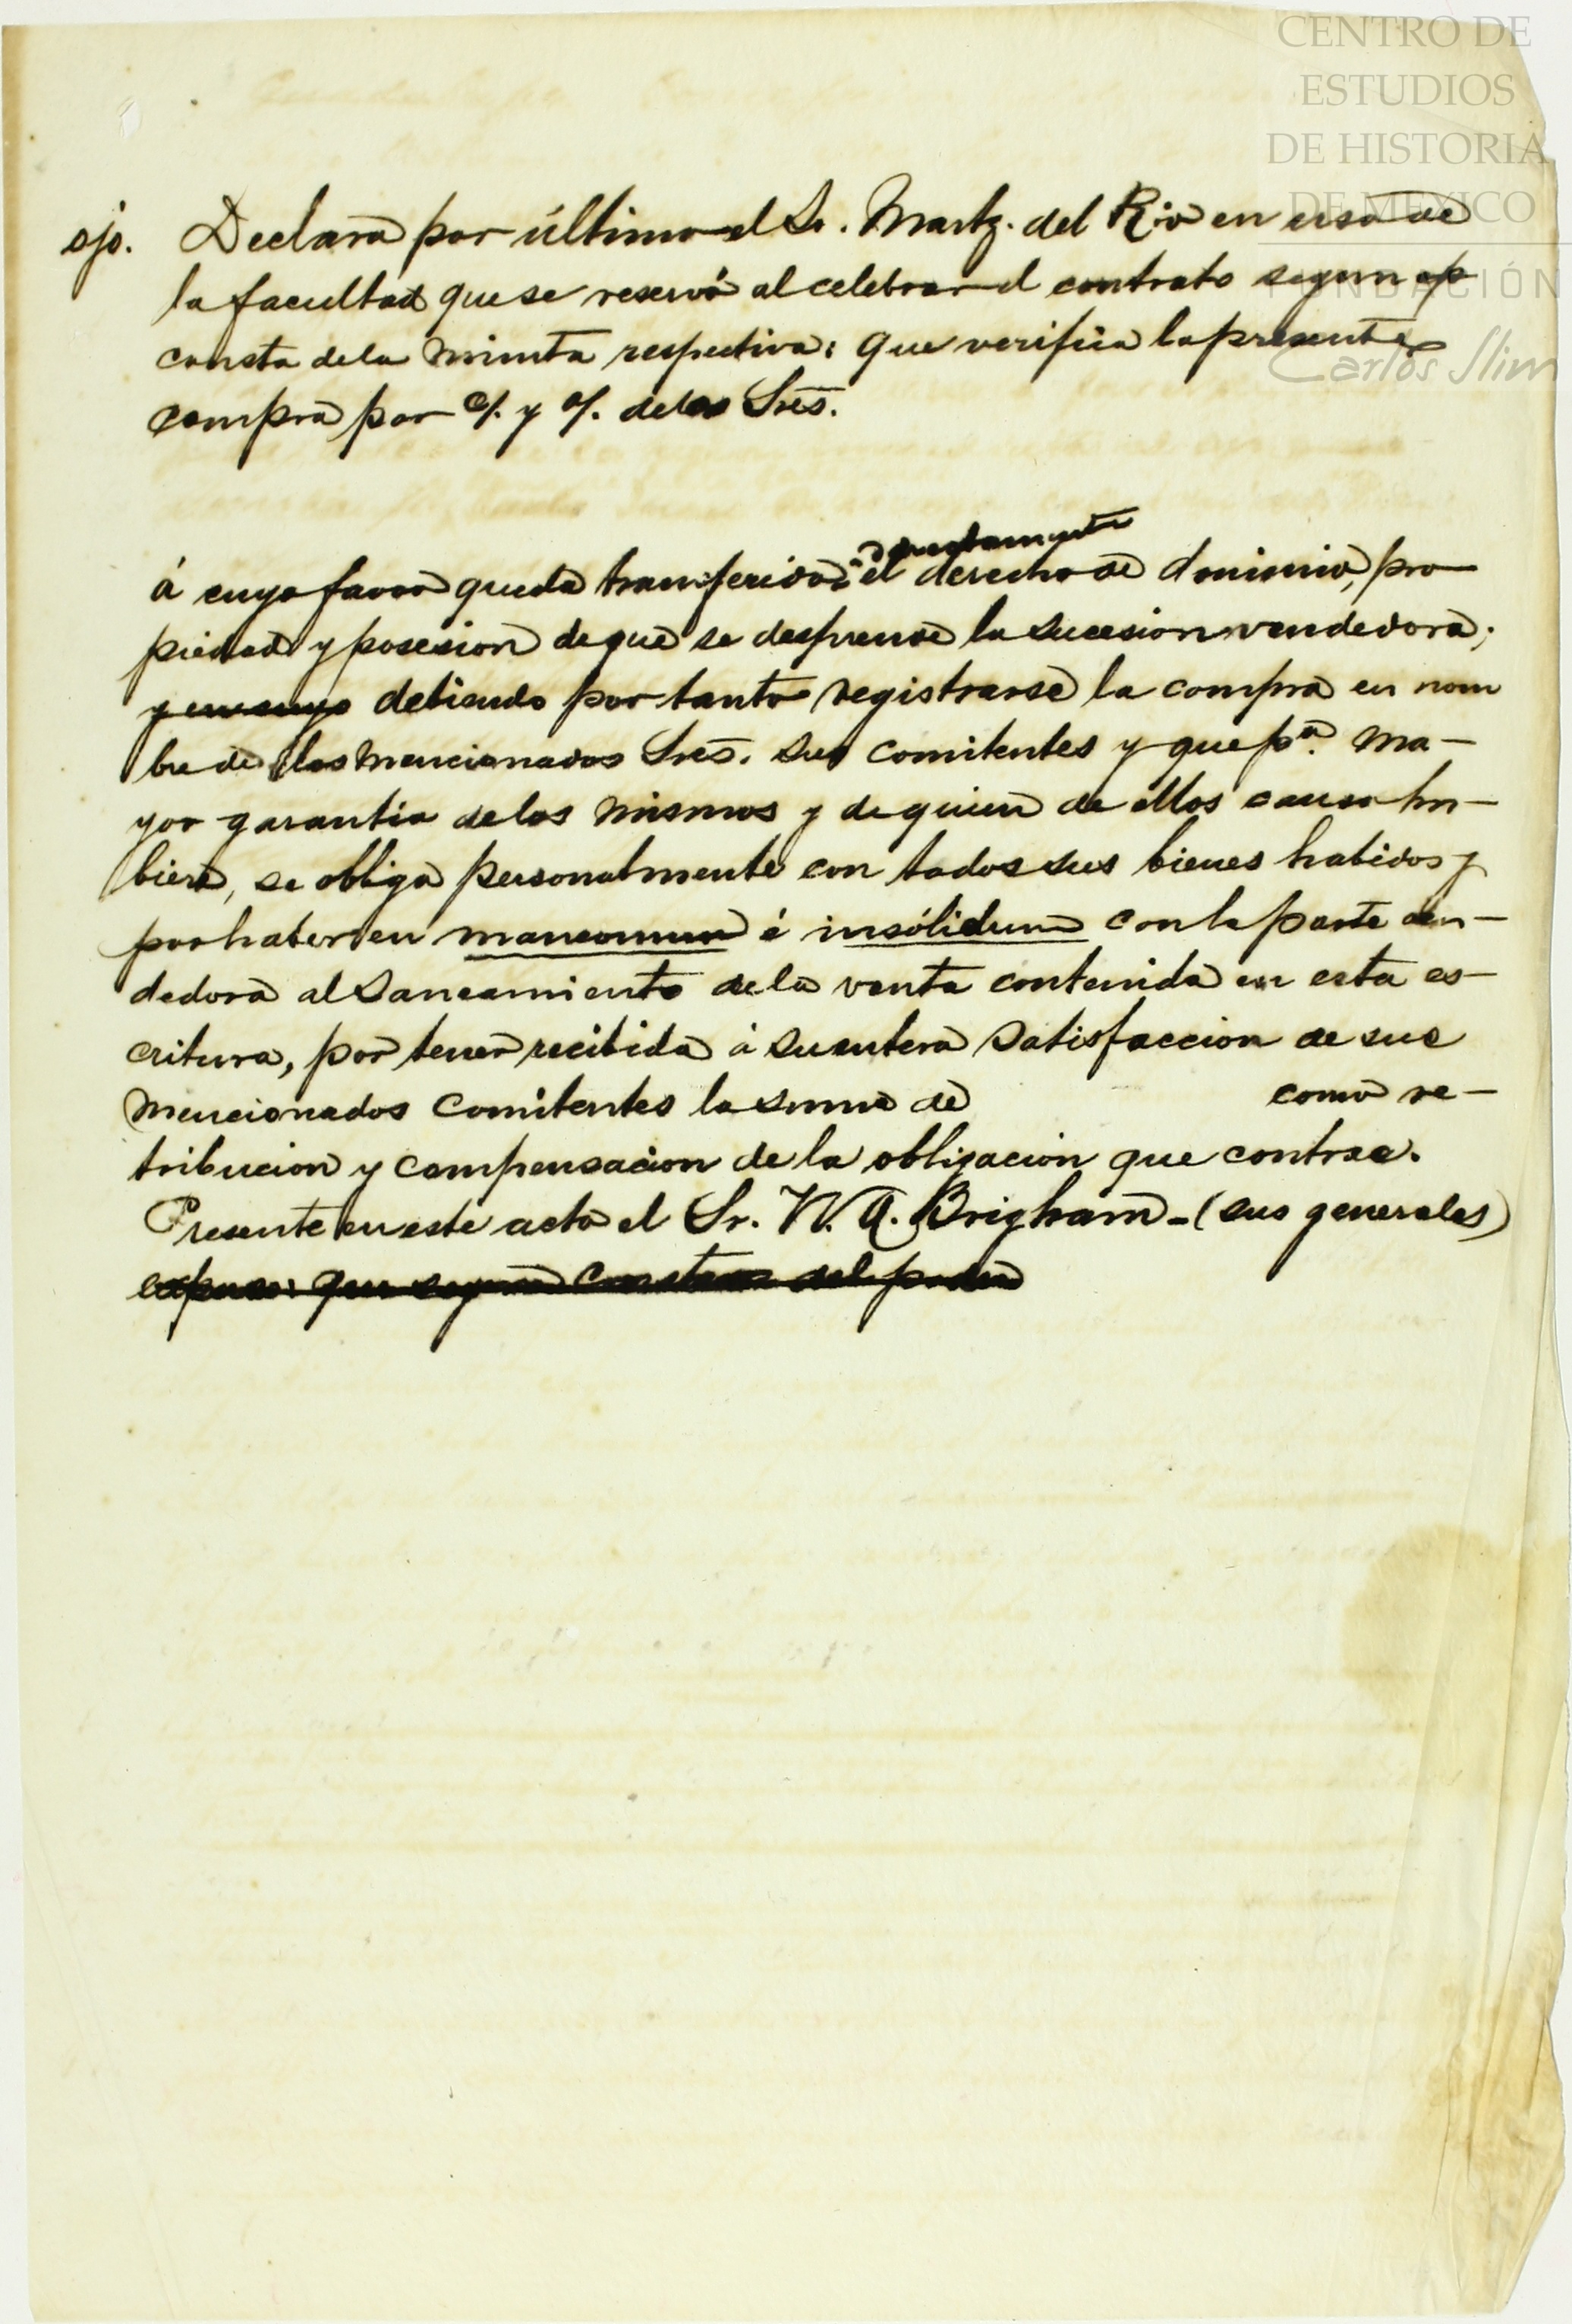 CENTRO DE
ESTUDIOS
DE HISTORIA
DE MÉXICO
FUNDACIÓN
Carlos Slim
ojo. Declara por último el Sr. Martz. del Rio en uso de
la facultad que se reservó al celebrar el contrato segun
consta de la minuta respectiva: que verifica la presente
compra por c/. y o/. de los Sres.
directamente
á cuyo favor queda transferido el derecho de dominio, pro
piedad y posesion de que se desprende la sucesion vendedora;
y en cuyo debiendo por tanto registrarse la compra en nom
bre de los mencionados Sres. sus comitentes y que pa. ma-
yor garantia de los mismos y de quien de ellos causa hu-
biere, se obliga personalmente con todos sus bienes habidos y
por haber en mancomun é insólidum con la parte ven-
dedora al saneamiento de la venta contenida en esta es-
critura, por tener recibida á su entera satisfaccion de sus
mencionados comitentes la suma de como re-
tribucion y compensacion de la obligacion que contrae.
Presente en este acto el Sr. W. A. Brigham - (sus generales)
expuso: que segun consta del poder